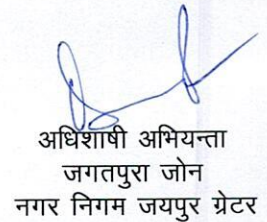 अधिशाषी अभियन्ता
जगतपुरा जोन
नगर निगम जयपुर ग्रेटर